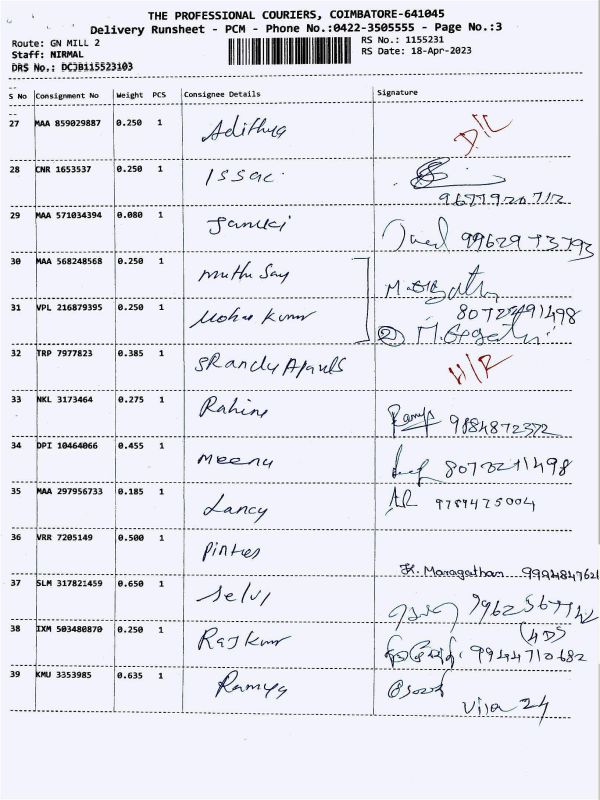 THE PROFESSIONAL COURIERS, COIMBATORE-641045
Delivery Runsheet - PCM - Phone No.:0422-3505555 - Page No.:3
Route: GN MILL 2 RS No.: 1155231
Staff: NIRMAL RS Date: 18-Apr-2023
DRS No.: DCJB115523103
S No Consignment No Weight PCS Consignee Details Signature
27 MAA 859029887 0.250 1 Adithya D/L
28 CNR 1653537 0.250 1 Issac
29 MAA 571034394 0.080 1 Janaki 9962973793
30 MAA 568248568 0.250 1 muthu Say
31 VPL 216879395 0.250 1 Mohan Kumar
②
32 TRP 7977823 0.385 1
33 NKL 3173464 0.275 1 Ramya 9884872372
34 DPI 10464066 0.455 1 Meena
35 MAA 297956733 0.185 1 Lancy AR 9789475004
36 VRR 7205149 0.500 1
K. Maragatham 9994847621
37 SLM 317821459 0.650 1 Selvi
38 IXM 503480870 0.250 1 Rajkumar 9944710682
39 KMU 3353985 0.635 1 Ramya
24